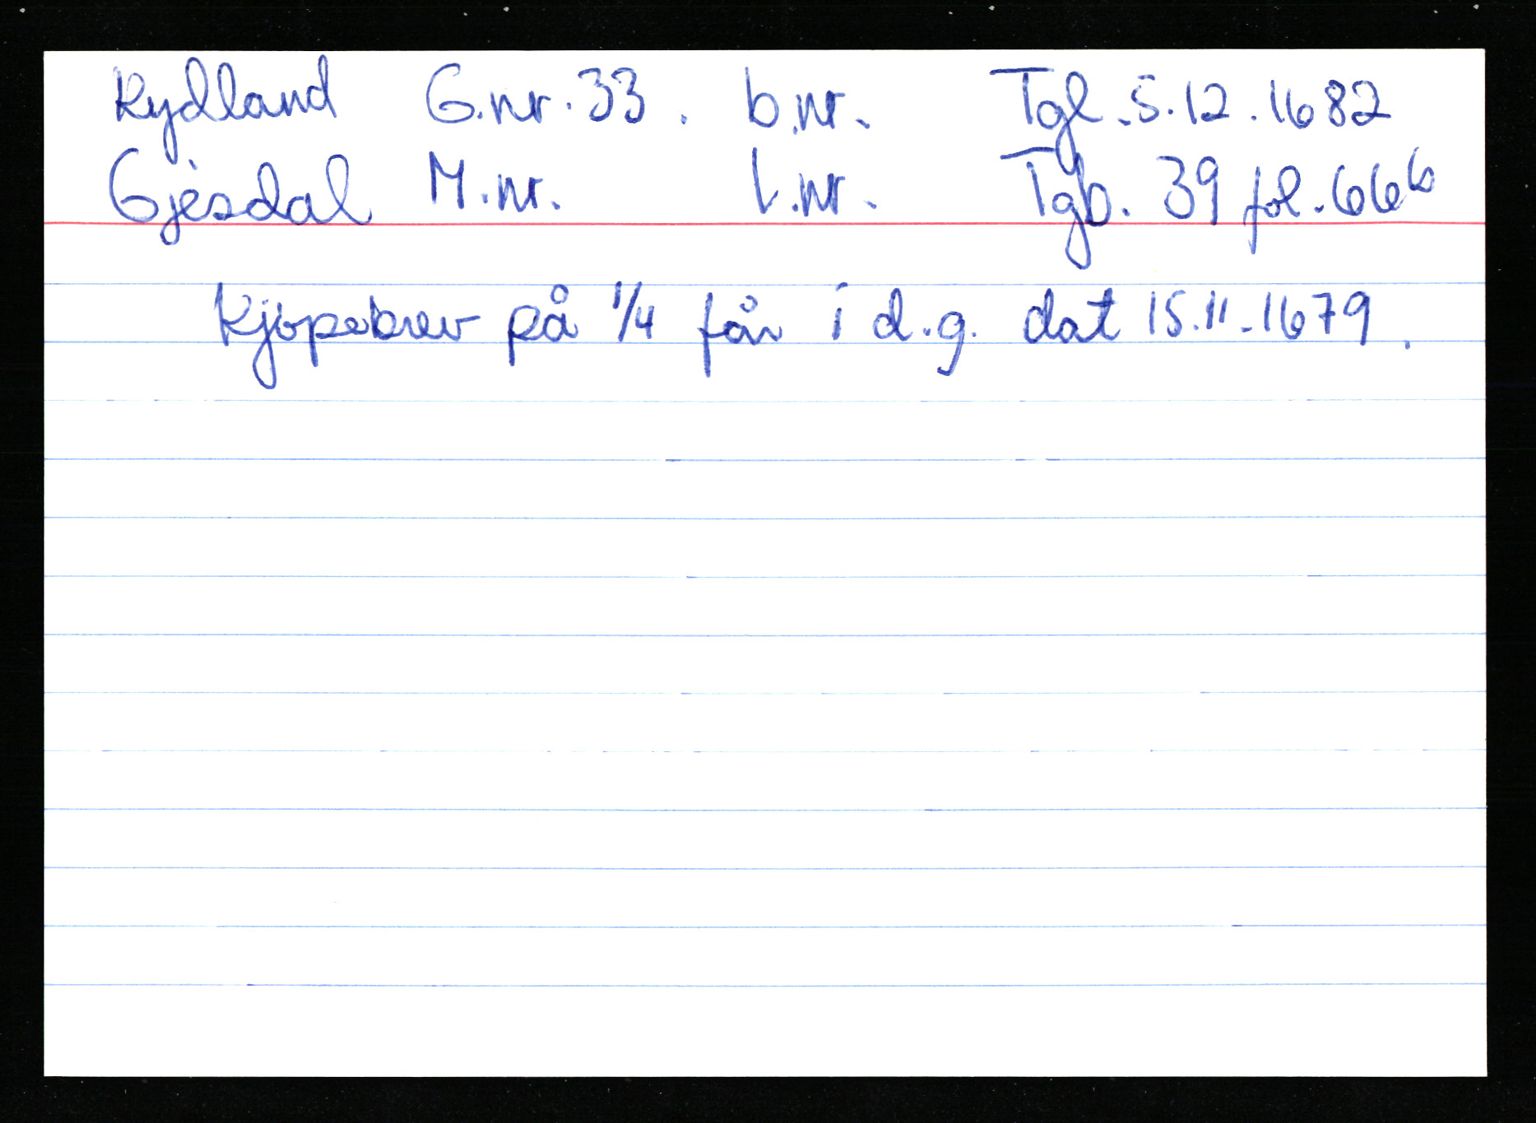 Kydland G.nr. 33. b.nr. Tgl. 5.12.1682
Gjesdal M.nr. l.nr. Tgb. 39 fol. 66b
Kjöpebrev på 1/4 får i d.g. dat 15.11.1679.